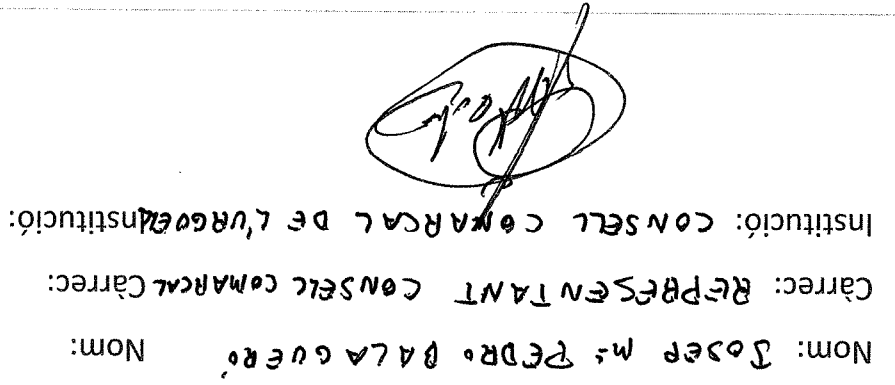 Nom: JOSEP Mª PEDRO BALAGUERÓ Nom:
Càrrec: REPRESENTANT CONSELL COMARCAL Càrrec:
Institució: CONSELL COMARCAL DE L'URGELL Institució: